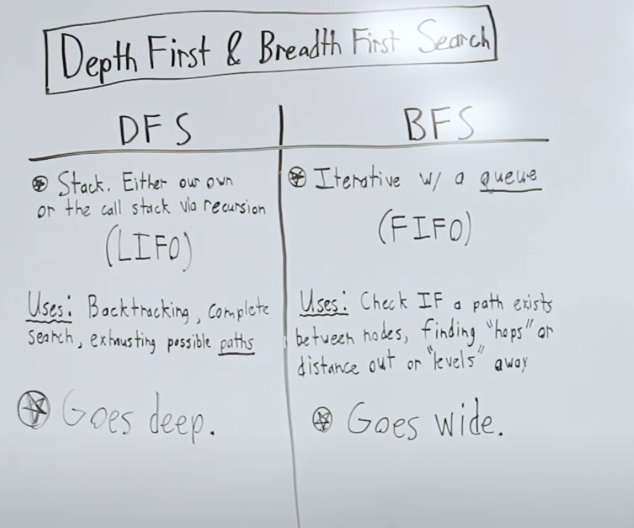 Depth First & Breadth First Search
DFS
Stack. Either our own
or the call stack via recursion
(LIFO)
Uses: Backtracking, complete
search, exhausting possible paths
Goes deep.
BFS
Iterative w/ a queue
(FIFO)
Uses: Check IF a path exists
between nodes, finding "hops" or
distance out or "levels" away
Goes wide.